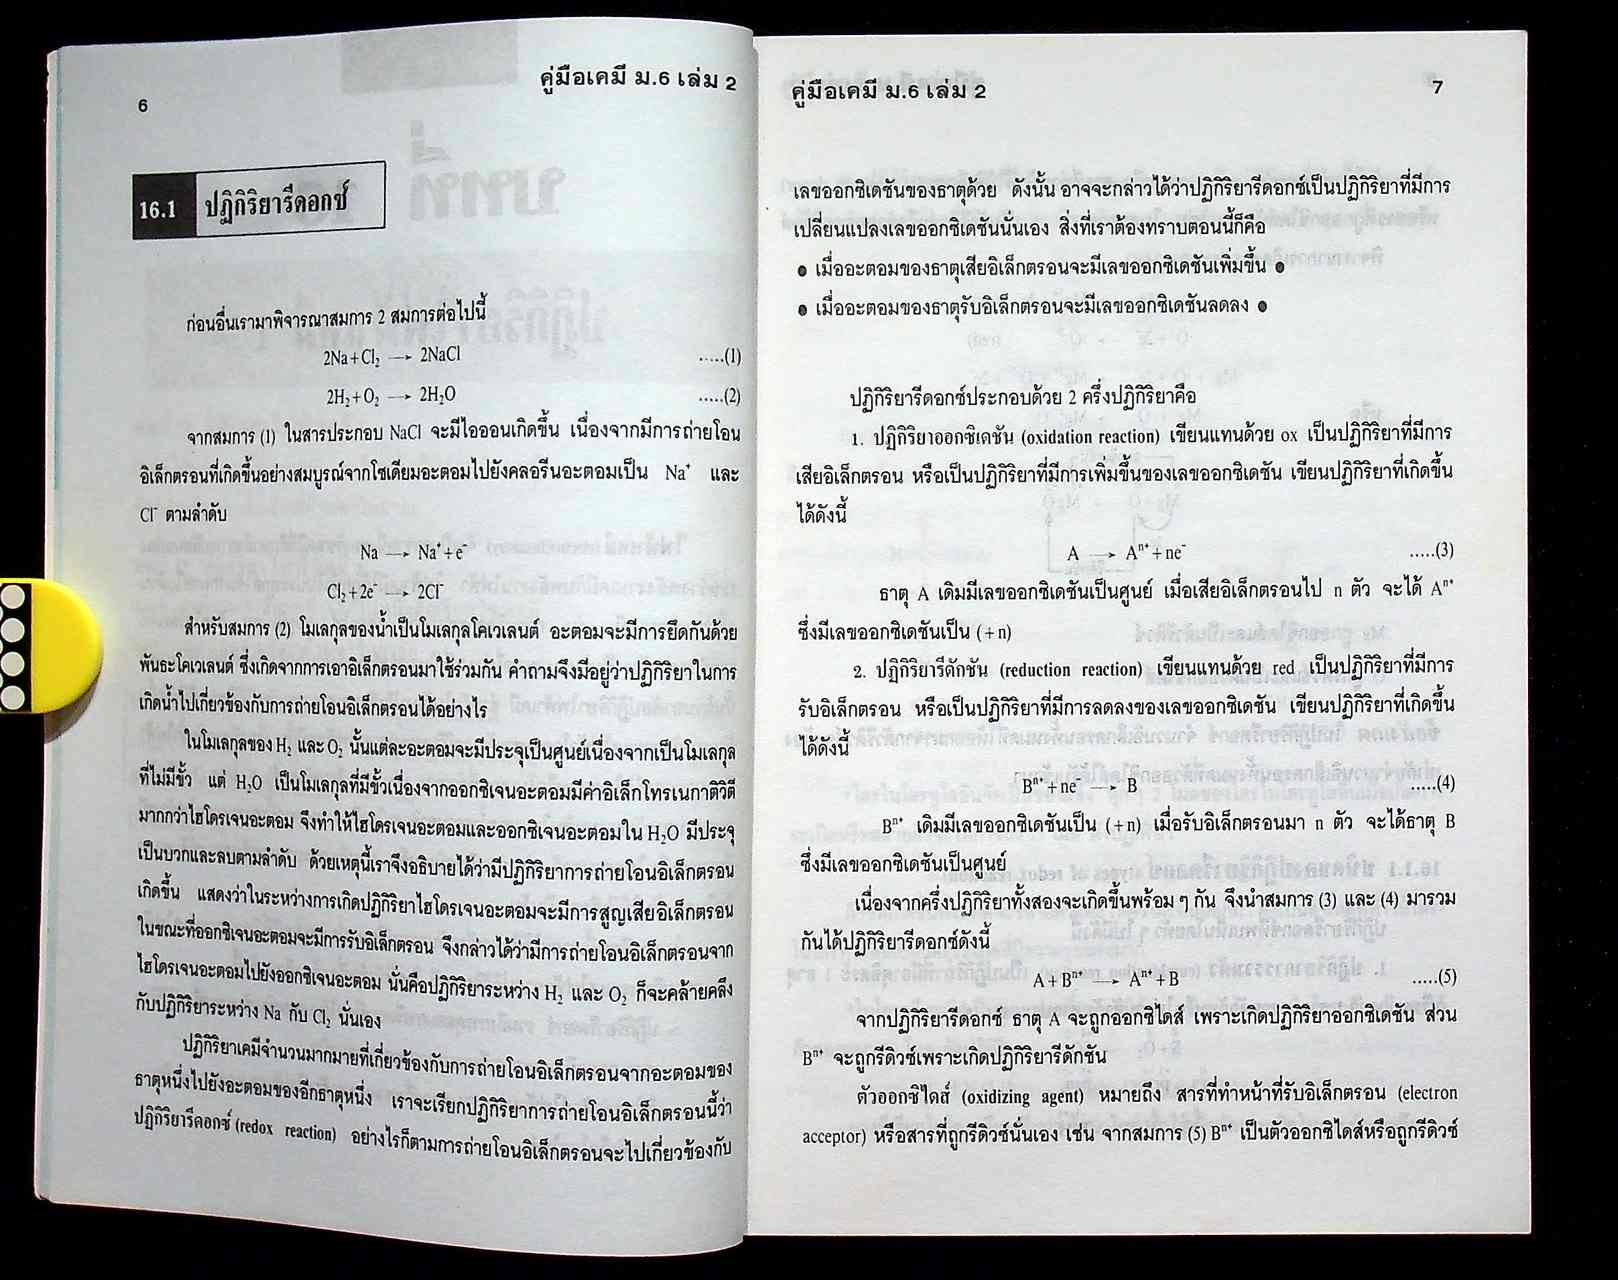 6
คู่มือเคมี ม.6 เล่ม 2
16.1 ปฏิกิริยารีดอกซ์
ก่อนอื่นเรามาพิจารณาสมการ 2 สมการต่อไปนี้
2Na+Cl₂ → 2NaCl .....(1)
2H₂+O₂ → 2H₂O .....(2)
จากสมการ (1) ในสารประกอบ NaCl จะมีไอออนเกิดขึ้น เนื่องจากมีการถ่ายโอน
อิเล็กตรอนที่เกิดขึ้นอย่างสมบูรณ์จากโซเดียมอะตอมไปยังคลอรีนอะตอมเป็น Na⁺ และ
Cl⁻ ตามลำดับ
Na → Na⁺+e⁻
Cl₂+2e⁻ → 2Cl⁻
สำหรับสมการ (2) โมเลกุลของน้ำเป็นโมเลกุลโคเวเลนต์ อะตอมจะมีการยึดกันด้วย
พันธะโคเวเลนต์ ซึ่งเกิดจากการเอาอิเล็กตรอนมาใช้ร่วมกัน คำถามจึงมีอยู่ว่าปฏิกิริยาในการ
เกิดน้ำไปเกี่ยวข้องกับการถ่ายโอนอิเล็กตรอนได้อย่างไร
ในโมเลกุลของ H₂ และ O₂ นั้นแต่ละอะตอมจะมีประจุเป็นศูนย์เนื่องจากเป็นโมเลกุล
ที่ไม่มีขั้ว แต่ H₂O เป็นโมเลกุลที่มีขั้วเนื่องจากออกซิเจนอะตอมมีค่าอิเล็กโทรเนกาติวิตี
มากกว่าไฮโดรเจนอะตอม จึงทำให้ไฮโดรเจนอะตอมและออกซิเจนอะตอมใน H₂O มีประจุ
เป็นบวกและลบตามลำดับ ด้วยเหตุนี้เราจึงอธิบายได้ว่ามีปฏิกิริยาการถ่ายโอนอิเล็กตรอน
เกิดขึ้น แสดงว่าในระหว่างการเกิดปฏิกิริยาไฮโดรเจนอะตอมจะมีการสูญเสียอิเล็กตรอน
ในขณะที่ออกซิเจนอะตอมจะมีการรับอิเล็กตรอน จึงกล่าวได้ว่ามีการถ่ายโอนอิเล็กตรอนจาก
ไฮโดรเจนอะตอมไปยังออกซิเจนอะตอม นั่นคือปฏิกิริยาระหว่าง H₂ และ O₂ ก็จะคล้ายคลึง
กับปฏิกิริยาระหว่าง Na กับ Cl₂ นั่นเอง
ปฏิกิริยาเคมีจำนวนมากมายที่เกี่ยวข้องกับการถ่ายโอนอิเล็กตรอนจากอะตอมของ
ธาตุหนึ่งไปยังอะตอมของอีกธาตุหนึ่ง เราจะเรียกปฏิกิริยาการถ่ายโอนอิเล็กตรอนนี้ว่า
ปฏิกิริยารีดอกซ์ (redox reaction) อย่างไรก็ตามการถ่ายโอนอิเล็กตรอนจะไปเกี่ยวข้องกับ
คู่มือเคมี ม.6 เล่ม 2
7
เลขออกซิเดชันของธาตุด้วย ดังนั้น อาจจะกล่าวได้ว่าปฏิกิริยารีดอกซ์เป็นปฏิกิริยาที่มีการ
เปลี่ยนแปลงเลขออกซิเดชันนั่นเอง สิ่งที่เราต้องทราบตอนนี้ก็คือ
● เมื่ออะตอมของธาตุเสียอิเล็กตรอนจะมีเลขออกซิเดชันเพิ่มขึ้น ●
● เมื่ออะตอมของธาตุรับอิเล็กตรอนจะมีเลขออกซิเดชันลดลง ●
ปฏิกิริยารีดอกซ์ประกอบด้วย 2 ครึ่งปฏิกิริยาคือ
1. ปฏิกิริยาออกซิเดชัน (oxidation reaction) เขียนแทนด้วย ox เป็นปฏิกิริยาที่มีการ
เสียอิเล็กตรอน หรือเป็นปฏิกิริยาที่มีการเพิ่มขึ้นของเลขออกซิเดชัน เขียนปฏิกิริยาที่เกิดขึ้น
ได้ดังนี้
A → Aⁿ⁺+ne⁻ .....(3)
ธาตุ A เดิมมีเลขออกซิเดชันเป็นศูนย์ เมื่อเสียอิเล็กตรอนไป n ตัว จะได้ Aⁿ⁺
ซึ่งมีเลขออกซิเดชันเป็น (+n)
2. ปฏิกิริยารีดักชัน (reduction reaction) เขียนแทนด้วย red เป็นปฏิกิริยาที่มีการ
รับอิเล็กตรอน หรือเป็นปฏิกิริยาที่มีการลดลงของเลขออกซิเดชัน เขียนปฏิกิริยาที่เกิดขึ้น
ได้ดังนี้
Bⁿ⁺+ne⁻ → B .....(4)
Bⁿ⁺ เดิมมีเลขออกซิเดชันเป็น (+n) เมื่อรับอิเล็กตรอนมา n ตัว จะได้ธาตุ B
ซึ่งมีเลขออกซิเดชันเป็นศูนย์
เนื่องจากครึ่งปฏิกิริยาทั้งสองจะเกิดขึ้นพร้อม ๆ กัน จึงนำสมการ (3) และ (4) มารวม
กันได้ปฏิกิริยารีดอกซ์ดังนี้
A+Bⁿ⁺ → Aⁿ⁺+B .....(5)
จากปฏิกิริยารีดอกซ์ ธาตุ A จะถูกออกซิไดส์ เพราะเกิดปฏิกิริยาออกซิเดชัน ส่วน
Bⁿ⁺ จะถูกรีดิวซ์เพราะเกิดปฏิกิริยารีดักชัน
ตัวออกซิไดส์ (oxidizing agent) หมายถึง สารที่ทำหน้าที่รับอิเล็กตรอน (electron
acceptor) หรือสารที่ถูกรีดิวซ์นั่นเอง เช่น จากสมการ (5) Bⁿ⁺ เป็นตัวออกซิไดส์หรือถูกรีดิวซ์